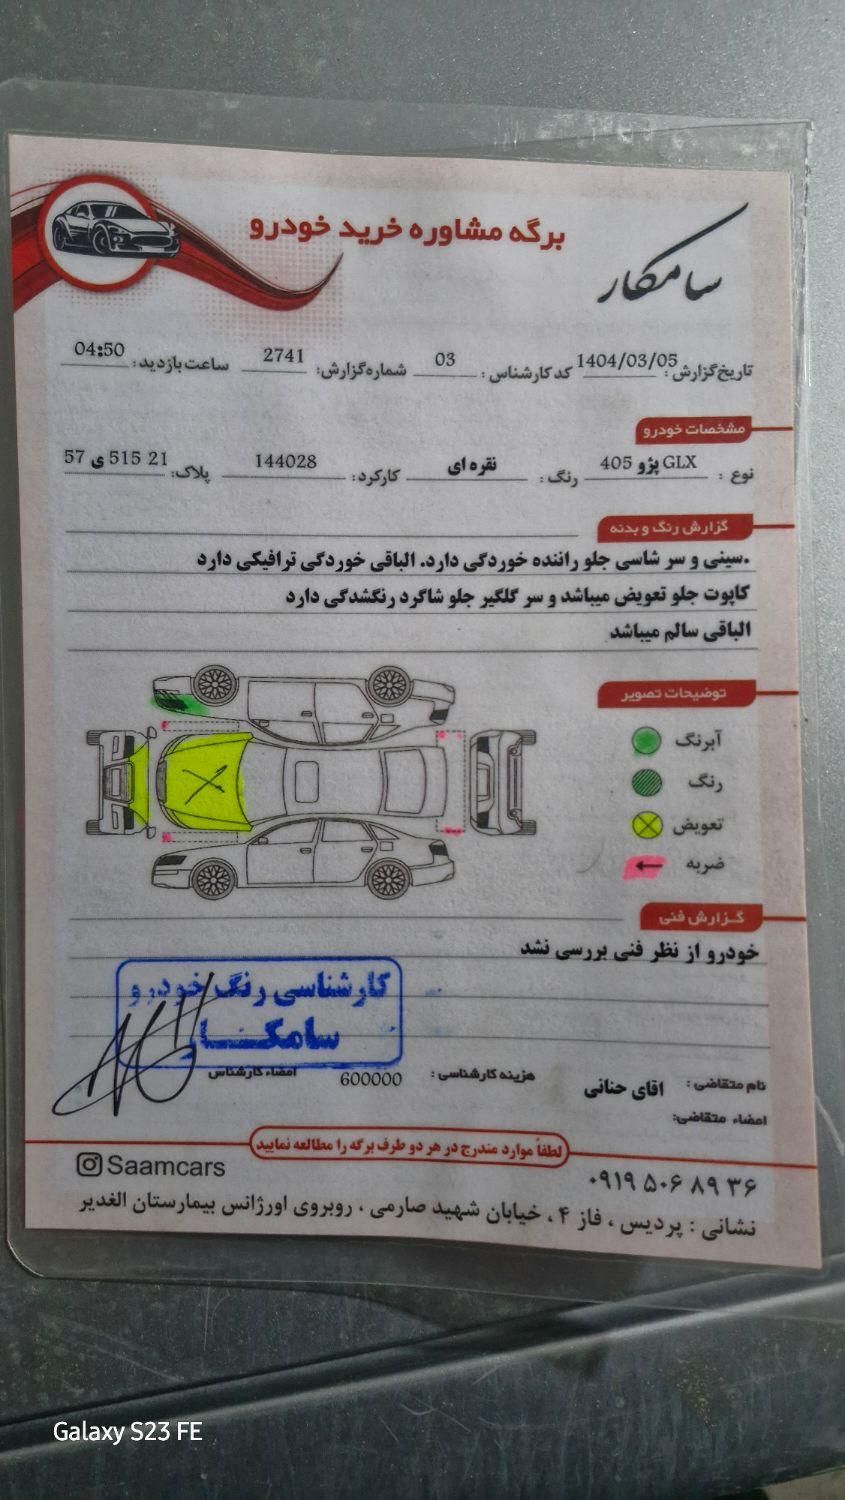 برگه مشاوره خرید خودرو
سامکار
تاریخ گزارش: 1404/03/05 کد کارشناس: 03 شماره گزارش: 2741 ساعت بازدید: 04:50
مشخصات خودرو
نوع: پژو 405 GLX رنگ: نقره ای کارکرد: 144028 پلاک: 21 515 ی 57
گزارش رنگ و بدنه
.سینی و سر شاسی جلو راننده خوردگی دارد. الباقی خوردگی ترافیکی دارد
کاپوت جلو تعویض میباشد و سر گلگیر جلو شاگرد رنگشدگی دارد
الباقی سالم میباشد
توضیحات تصویر
آبرنگ
رنگ
تعویض
ضربه
گزارش فنی
خودرو از نظر فنی بررسی نشد
کارشناسی رنگ خودرو
سامکار
نام متقاضی: اقای حنانی هزینه کارشناسی: 600000 امضاء کارشناس
امضاء متقاضی:
لطفاً موارد مندرج در هر دو طرف برگه را مطالعه نمایید
۰۹۱۹ ۵۰۶ ۸۹ ۳۶ Saamcars
نشانی: پردیس، فاز ۴، خیابان شهید صارمی، روبروی اورژانس بیمارستان الغدیر
Galaxy S23 FE